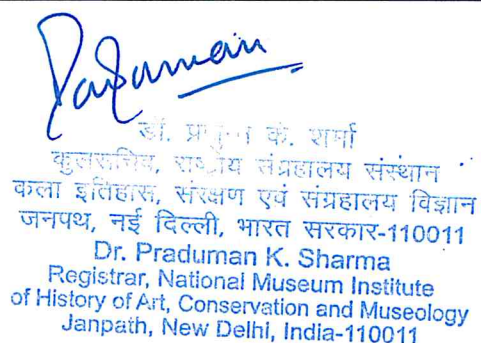 डॉ. के. शर्मा
कुलसचिव, राष्ट्रीय संग्रहालय संस्थान
कला इतिहास, संरक्षण एवं संग्रहालय विज्ञान
जनपथ, नई दिल्ली, भारत सरकार-110011
Dr. Praduman K. Sharma
Registrar, National Museum Institute
of History of Art, Conservation and Museology
Janpath, New Delhi, India-110011